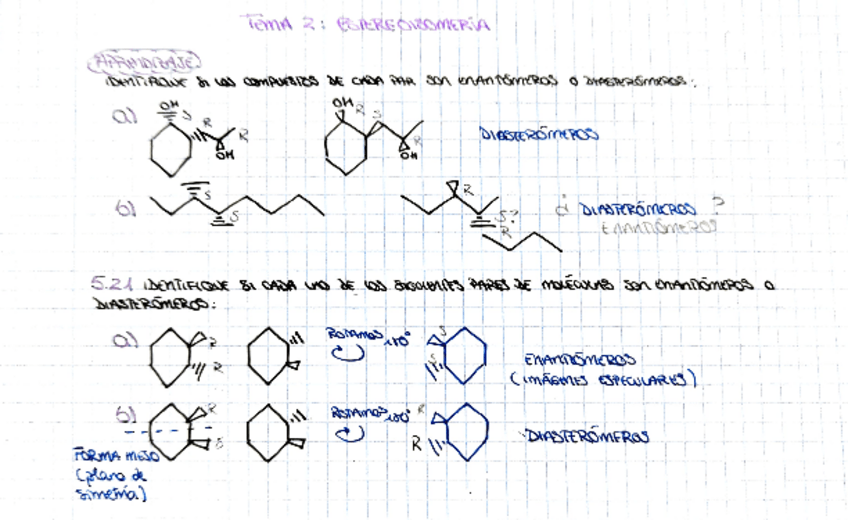 TEMA 2: ESTEREOISOMERÍA
APRENDIZAJE
IDENTIFIQUE SI LOS COMPUESTOS DE CADA PAR SON ENANTIÓMEROS O DIASTERÓMEROS:
a) OH S R R OH OH R S R OH DIASTERÓMEROS
b) S S R S? R ¿ DIASTERÓMEROS ?
ENANTIÓMEROS
5.21 IDENTIFIQUE SI CADA UNO DE LOS SIGUIENTES PARES DE MOLÉCULAS SON ENANTIÓMEROS O
DIASTERÓMEROS:
a) R R ROTAMOS 180° S S ENANTIÓMEROS
(IMÁGENES ESPECULARES)
b) R S ROTAMOS 180° R R DIASTERÓMEROS
FORMA MESO
(plano de
simetría)